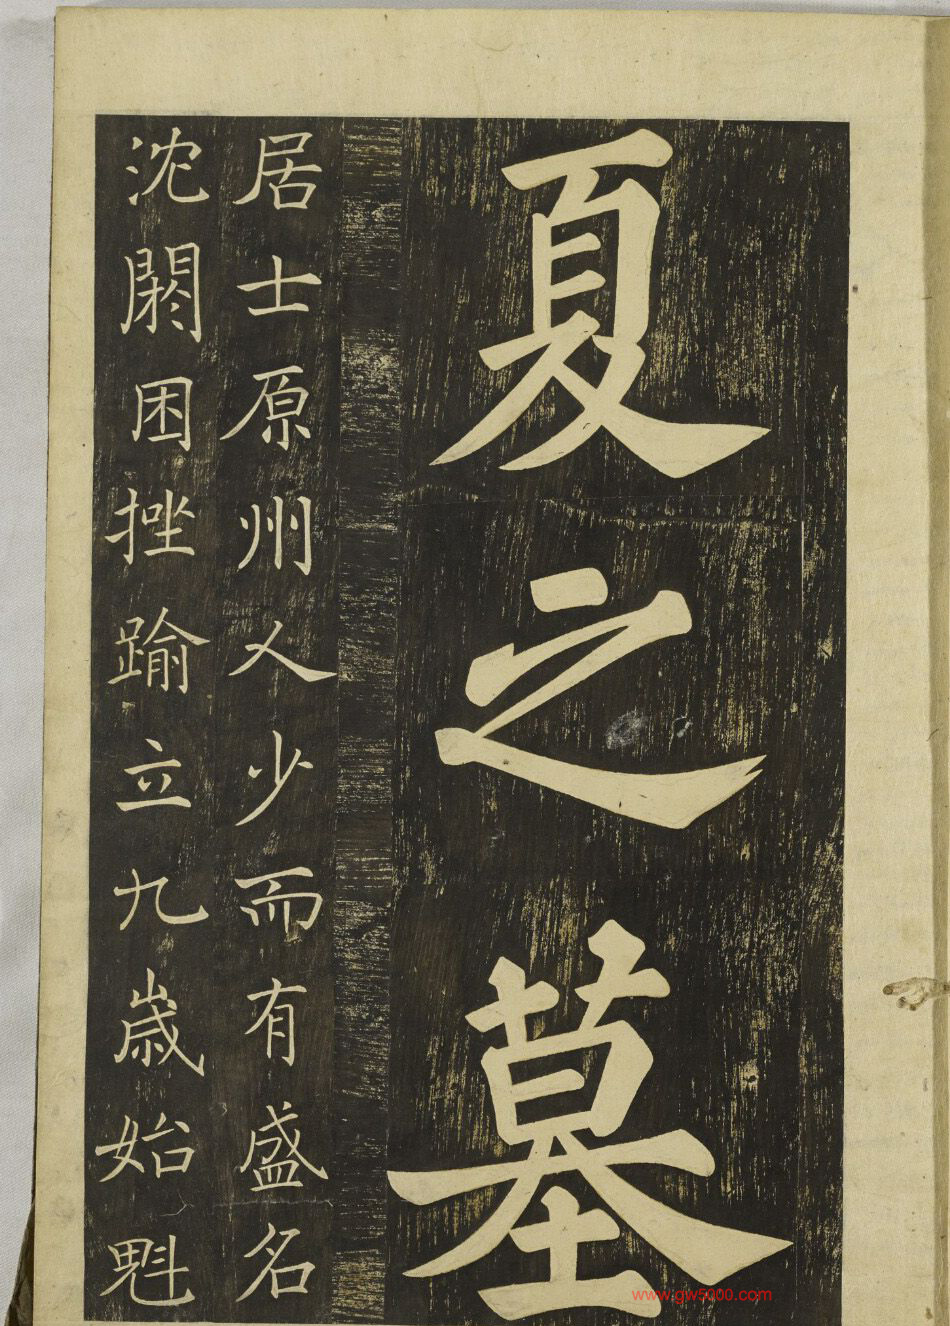 夏之墓
居士原州人少而有盛名
沈閼困挫踰立九歳始魁
www.gw5000.com